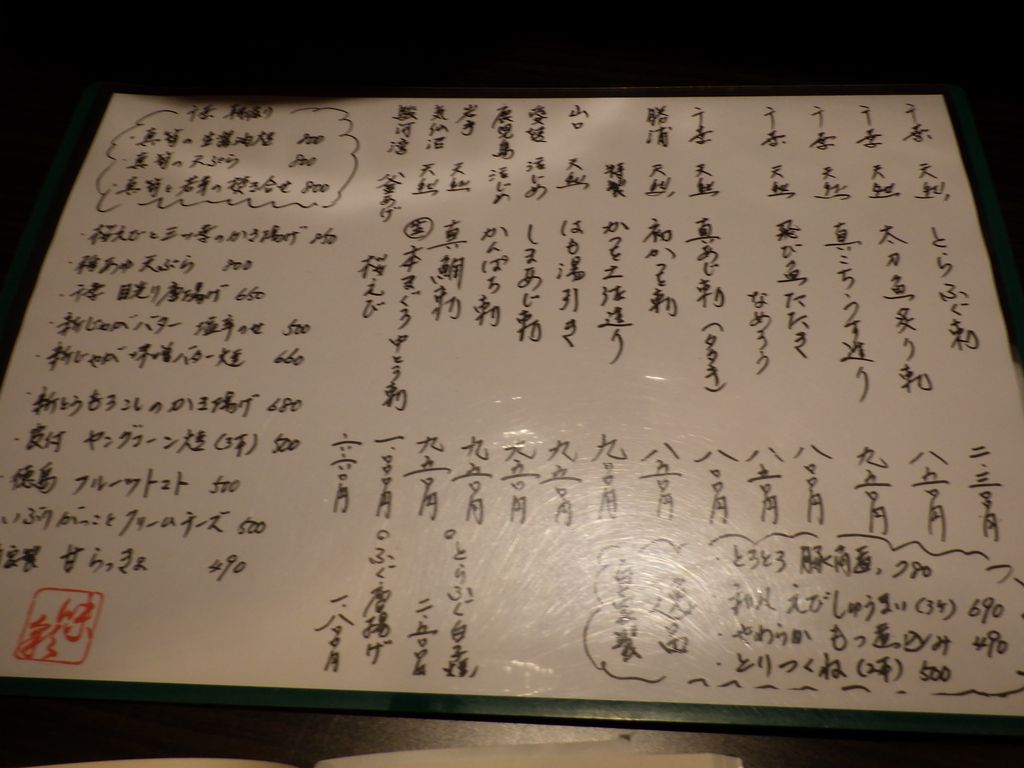 千葉 天然 とらふぐ刺 二、三〇〇円
千葉 天然 太刀魚炙り刺 八五〇円
千葉 天然 真こちうす造り 九五〇円
千葉 天然 飛び魚たたき なめろう 八〇〇円 八五〇円
千葉 天然 真あじ刺(タタキ) 八〇〇円
勝浦 天然 初かつを刺 八五〇円
特製 かつを土佐造り 九〇〇円
山口 天然 はも湯引き 九五〇円
愛媛 活じめ しまあじ刺 九五〇円
鹿児島 活じめ かんぱち刺 九五〇円
岩手 天然 真鯛刺 九五〇円
気仙沼 天然 生本まぐろ中とろ刺 一、〇〇〇円
駿河湾 釜あげ 桜えび 六〇〇円
○とらふぐ白子焼 二、五〇〇円
○ふぐ唐揚げ 一、八〇〇円
・とろとろ 豚角煮 780
えびしゅうまい(3ケ) 690
・やわらか もつ煮込み 490
・とりつくね(2本) 500
千葉
・真 の 生 800
・真 の天ぷら 800
・真 と若 の 合せ 800
・桜えびと三つ葉のかき揚げ
・稚あゆ天ぷら 800
・千葉 目光り唐揚げ 650
・新じゃがバター 塩辛のせ 500
・新じゃが味噌バター焼 660
・新とうもろこしのかき揚げ 680
ヤングコーン焼(3本) 500
徳島 フルーツトマト 500
いぶりがっことクリームチーズ 500
自家製 甘らっきょ 490
味